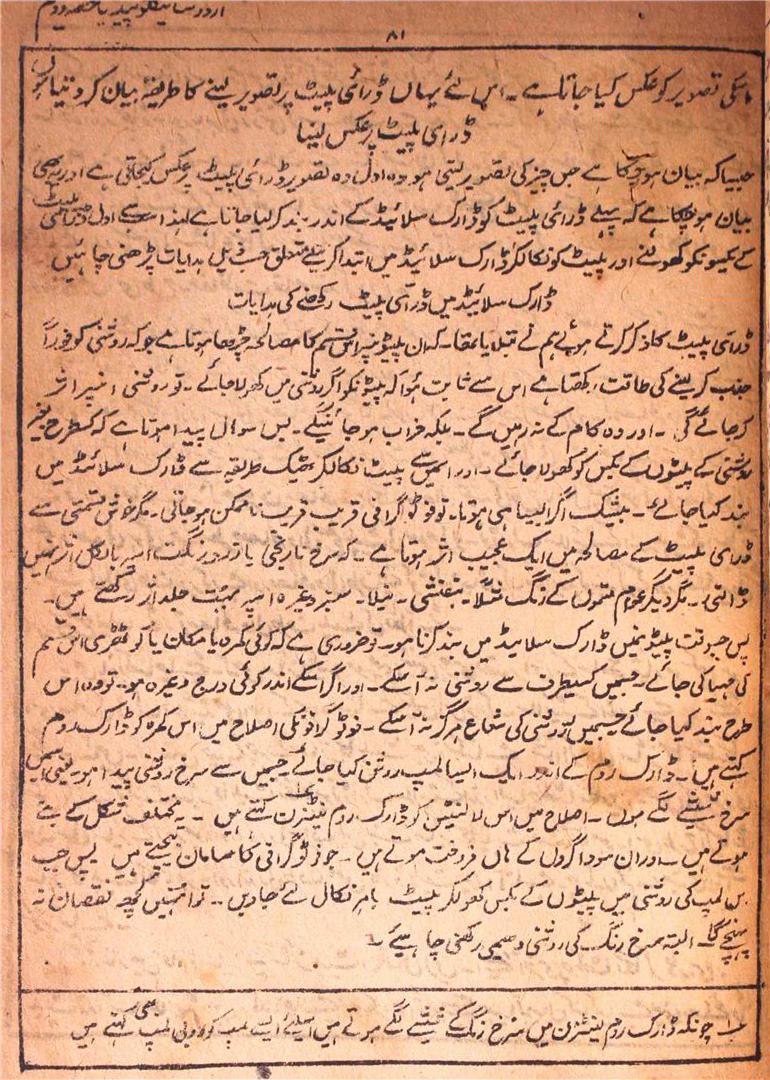 اردو سائیکلو پیڈیا حصہ دوم
۸۱
کی تصویر کو عکس کیا جاتا ہے ۔ اس لئے یہاں ڈرائی پلیٹ پر تصویر لینے کا طریقہ بیان کر دیتا ہوں
ڈرای پلیٹ پر عکس لینا
جیسا کہ بیان ہو چکا ہے جس چیز کی تصویر لینی ہو وہ اول وہ تصویر ڈرائی پلیٹ پر عکس کیجاتی ہے اور یہ بھی
بیان ہو چکا ہے کہ پہلے ڈرائی پلیٹ کو ڈارک سلائیڈ کے اندر بند کر لیا جاتا ہے لہذا سب سے اول ڈرائی پلیٹ
کے بکسونکو کھولنے اور پلیٹ کو نکالکر ڈارک سلائیڈ میں کے متعلق حسب ذیل ہدایات پڑھنی چاہئیں
ڈارک سلائیڈ میں ڈرائی پلیٹ رکھنے کی ہدایات
ڈرائی پلیٹ کا ذکر کرتے ہوئے ہم نے بتلایا تھا ۔ کہ ان پلیٹونپر اس قسم کا مصالحہ چڑھا ہوتا ہے جو کہ روشنی کو فوراً
جذب کر لینے کی طاقت رکھتا ہے اس سے ثابت ہوا کہ پلیٹونکو اگر روشنی میں کھولا جائے ۔ تو روشنی انپر اثر
کر جائے گی ۔ اور وہ کام کے نہ رہیں گے ۔ بلکہ خراب ہو جائینگے ۔ بس سوال پیدا ہوتا ہے کہ کسطرح بغیر
روشنی کے پلیٹوں کے بکس کو کھولا جائے ۔ اور اسمیں سے پلیٹ نکالکر ٹھیک طریقہ سے ڈارک سلائڈ میں
بند کیا جائے ۔ بیشک اگر ایسا ہی ہوتا ۔ تو فوٹوگرافی قریب قریب ناممکن ہو جاتی ۔ مگر خوش قسمتی سے
ڈرای پلیٹ کے مصالحہ میں ایک عجیب اثر ہوتا ہے ۔ کہ سرخ نارنجی یا زرد رنگت اسپر بالکل اثر نہیں
ڈالتی ۔ مگر دیگر عوام قسموں کے رنگ مثلاً ۔ بنفشی ۔ نیلا ۔ سبز وغیرہ اسپر بہت جلد اثر رکھتے ہیں ۔
پس جسوقت پلیٹونمیں ڈارک سلائیڈ میں بند کرنا ہو ۔ تو ضروری ہے کہ کوئی کمرہ یا مکان یا کوٹھڑی اس قسم
کی مہیا کی جائے ۔ جسمیں کسیطرف سے روشنی نہ آ سکے ۔ اور اگر اسکے اندر کوئی درج وغیرہ ہو ۔ تو وہ اس
طرح بند کیا جائے جسمیں روشنی کی شعاع ہرگز نہ آ سکے ۔ فوٹو گرافونکی اصلاح میں اس کمرہ کو ڈارک روم
کہتے ہیں ۔ ڈارک روم کے اندر ایک ایسا لمپ روشن کیا جائے جسمیں سے سرخ روشنی پیدا ہو ۔ یعنی اسمیں
سرخ شیشے لگے ہوں ۔ اصلاح میں اس لالٹین کو ڈارک روم لینٹرن کہتے ہیں ۔ یہ مختلف شکل کے بنے
ہوتے ہیں ۔ اور ان سوداگروں کے ہاں فروخت ہوتے ہیں ۔ جو فوٹوگرافی کا سامان بیچتے ہیں پس جب
اس لمپ کی روشنی میں پلیٹوں کے بکس کھولکر پلیٹ باہر نکال لئے جاویں ۔ تو انہیں کچھ نقصان نہ
پہنچے گا ۔ البتہ سرخ رنگ کی روشنی دھیمی رکھنی چاہیئے ۔
چونکہ ڈارک روم لینٹرن میں سرخ رنگ کے شیشے لگے ہوتے ہیں اسلیئے ایسے لمپ کو روبی لمپ بھی کہتے ہیں